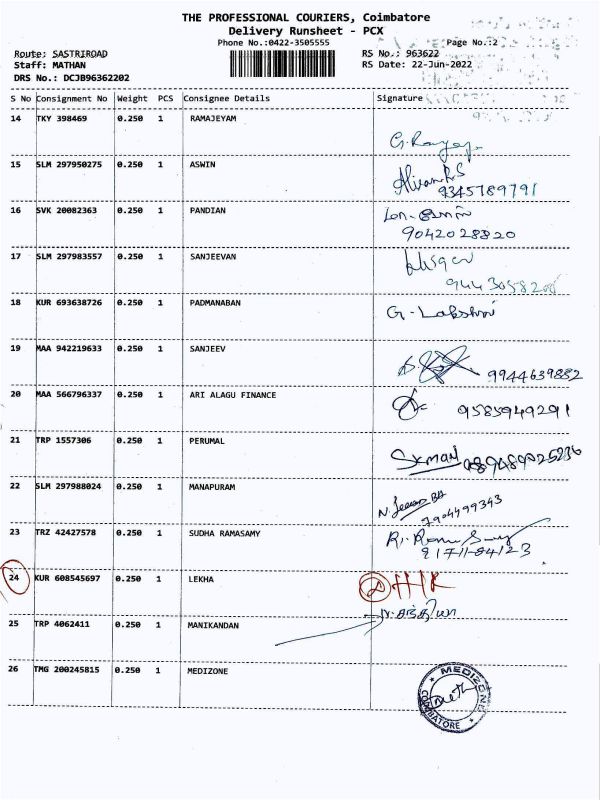 THE PROFESSIONAL COURIERS, Coimbatore
Delivery Runsheet - PCX
Phone No.:0422-3505555 Page No.:2
Route: SASTRIROAD RS No.: 963622
Staff: MATHAN RS Date: 22-Jun-2022
DRS No.: DCJB96362202
S No Consignment No Weight PCS Consignee Details Signature
14 TKY 398469 0.250 1 RAMAJEYAM
15 SLM 297950275 0.250 1 ASWIN
9345789791
16 SVK 20082363 0.250 1 PANDIAN
9042028820
17 SLM 297983557 0.250 1 SANJEEVAN
18 KUR 693638726 0.250 1 PADMANABAN G. Lakshmi
19 MAA 942219633 0.250 1 SANJEEV
9944639882
20 MAA 566796337 0.250 1 ARI ALAGU FINANCE
9585949291
21 TRP 1557306 0.250 1 PERUMAL
22 SLM 297988024 0.250 1 MANAPURAM
7904499343
23 TRZ 42427578 0.250 1 SUDHA RAMASAMY
24 KUR 608545697 0.250 1 LEKHA
25 TRP 4062411 0.250 1 MANIKANDAN
26 TMG 200245815 0.250 1 MEDIZONE
MEDIZONE
COIMBATORE